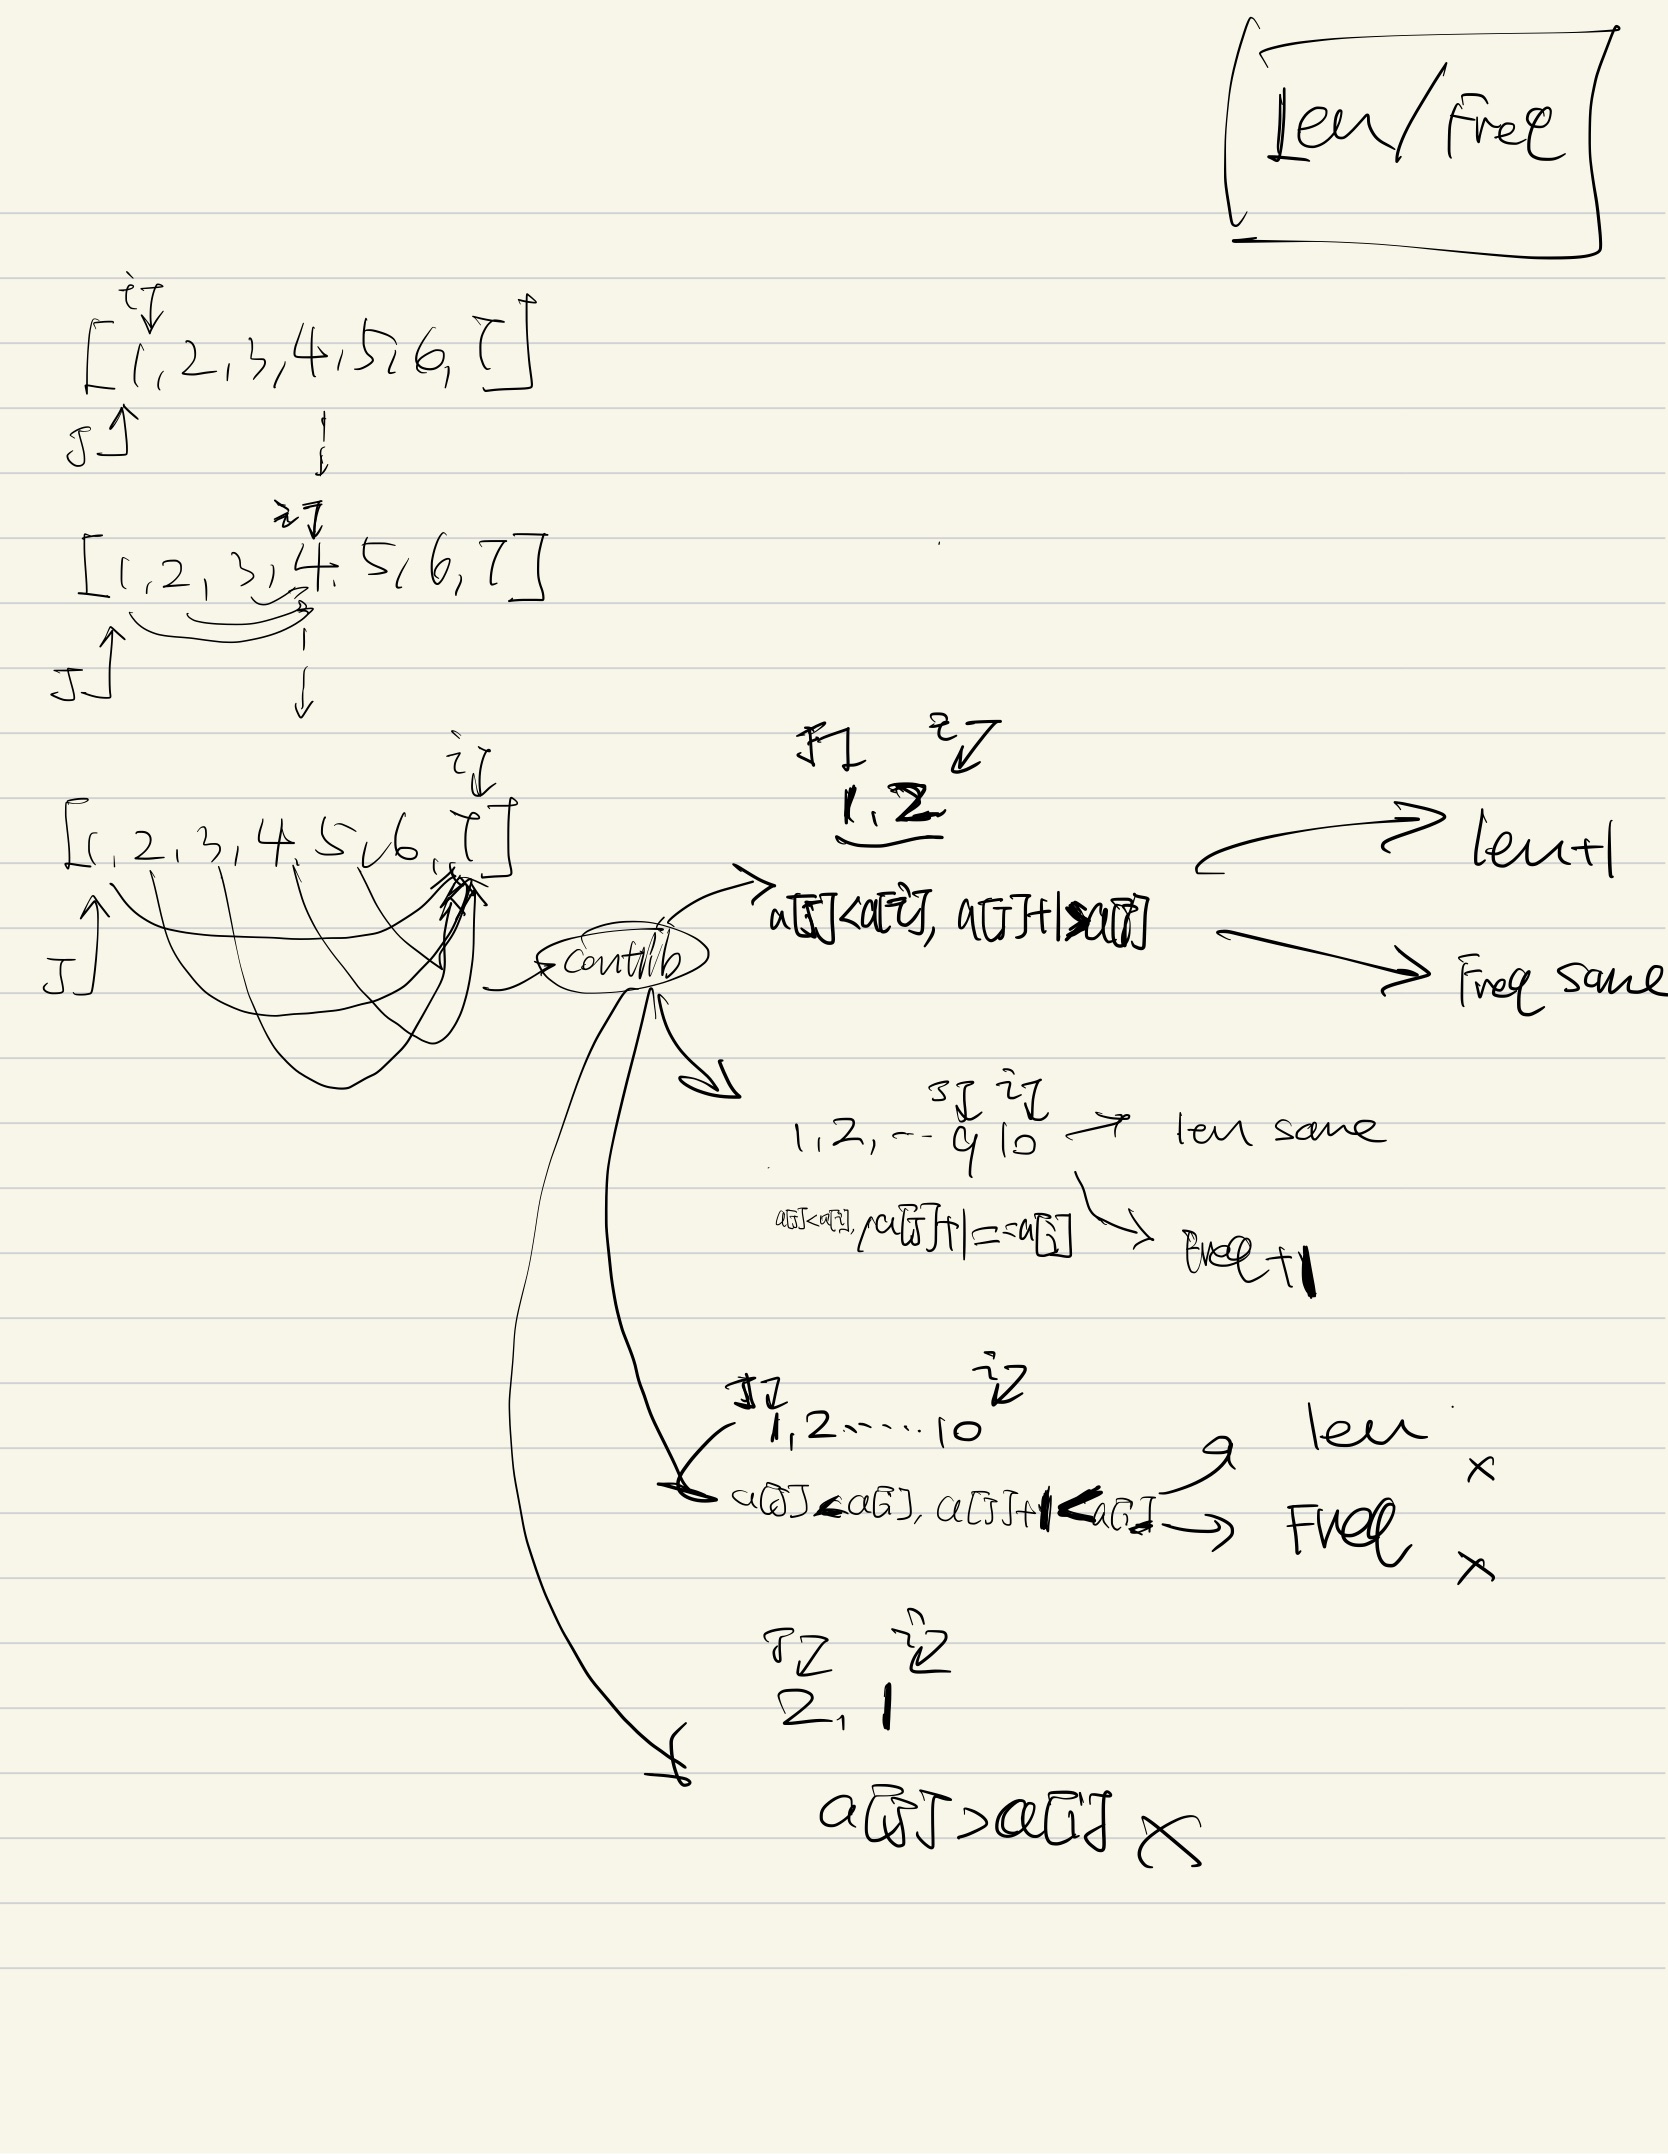 Len/Freq
i
[1,2,3,4,5,6,7]
J
i
[1,2,3,4,5,6,7]
J
i
[1,2,3,4,5,6,7]
J
contrib
J i
1,2
a[j]<a[i], a[j]+1>a[i]
len+1
Freq same
J i
1,2,--- 9 10
len same
a[j]<a[i], a[j]+1==a[i]
Freq+1
J i
1,2.....10
a[j]<a[i], a[j]+1<a[i]
len x
Freq x
J i
2,1
a[j]>a[i] X